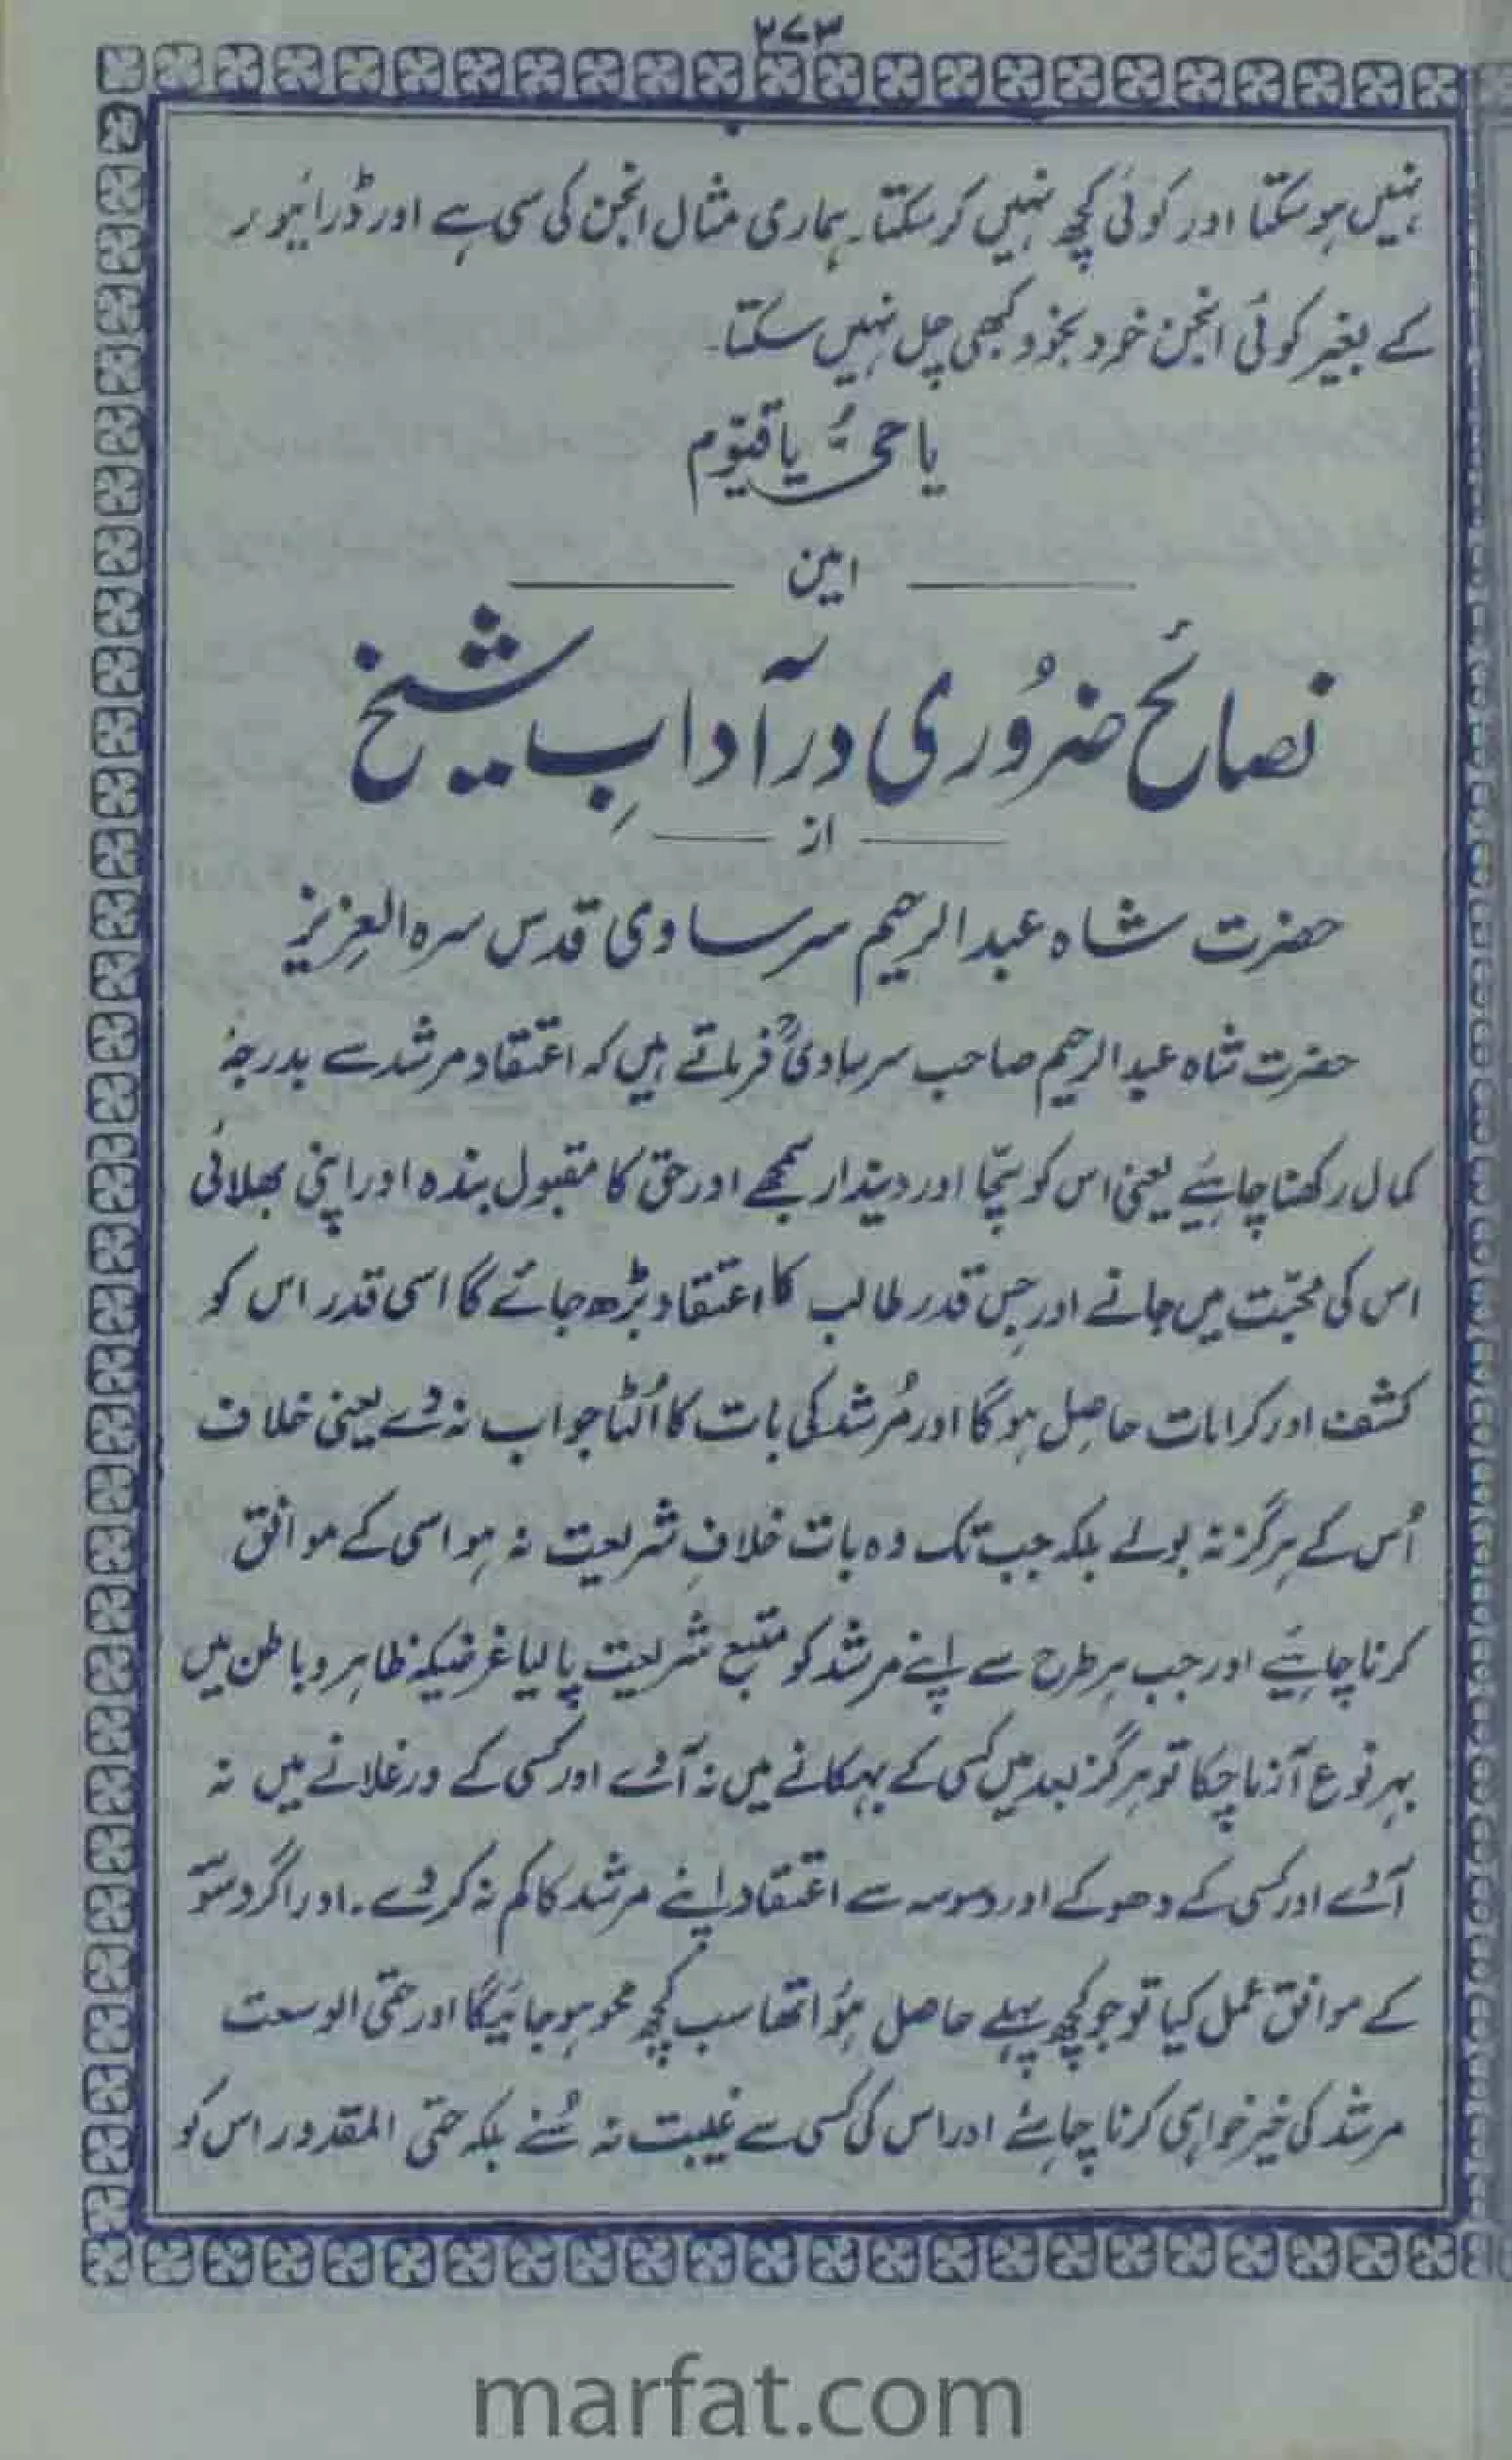 ۳۷۳
نہیں ہو سکتا اور کوئی کچھ نہیں کر سکتا۔ ہماری مثال انجن کی سی ہے اور ڈرائیور
کے بغیر کوئی انجن خود بخود کبھی چل نہیں سکتا۔
یا حیُّ یا قیّوم
امین
نصائح ضرُوری در آدابِ شیخ
از
حضرت شاہ عبد الرحیم سرساوی قدس سرہ العزیز
حضرت شاہ عبد الرحیم صاحب سرساویؒ فرماتے ہیں کہ اعتقاد مرشد سے بدرجۂ
کمال رکھنا چاہئیے یعنی اس کو سچّا اور دیندار سمجھے اور حق کا مقبول بندہ اور اپنی بھلائی
اس کی محبّت میں جانے اور جس قدر طالب کا اعتقاد بڑھ جائے گا اسی قدر اس کو
کشف اور کرامات حاصِل ہو گا اور مُرشد کی بات کا اُلٹا جواب نہ دے یعنی خلاف
اُس کے ہرگز نہ بولے بلکہ جب تک وہ بات خلافِ شریعت نہ ہو اسی کے موافق
کرنا چاہئیے اور جب ہر طرح سے اپنے مرشد کو متبع شریعت پا لیا غرضیکہ ظاہر و باطن میں
بہر نوع آزما چُکا تو ہرگز بعد میں کسی کے بہکانے میں نہ آئے اور کسی کے ورغلانے میں نہ
آئے اور کسی کے دھوکے اور وسوسہ سے اعتقاد اپنے مرشد کا کم نہ کر دے۔ اور اگر وسوسہ
کے موافق عمل کیا تو جو کچھ پہلے حاصل ہؤا تھا سب کچھ محو ہو جائیگا اور حتی الوسعت
مرشد کی خیر خواہی کرنا چاہئے اور اس کی کسی سے غیبت نہ سُنے بلکہ حتی المقدور اس کو
marfat.com